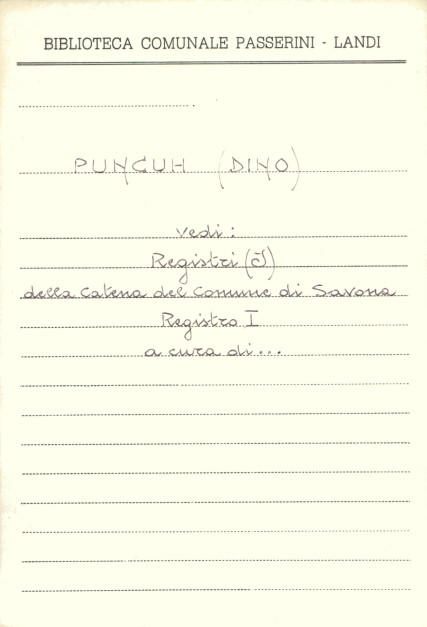 BIBLIOTECA COMUNALE PASSERINI - LANDI
PUNCUH (DINO)
vedi:
Registri (I)
della Catena del Comune di Savona
Registro I
a cura di...